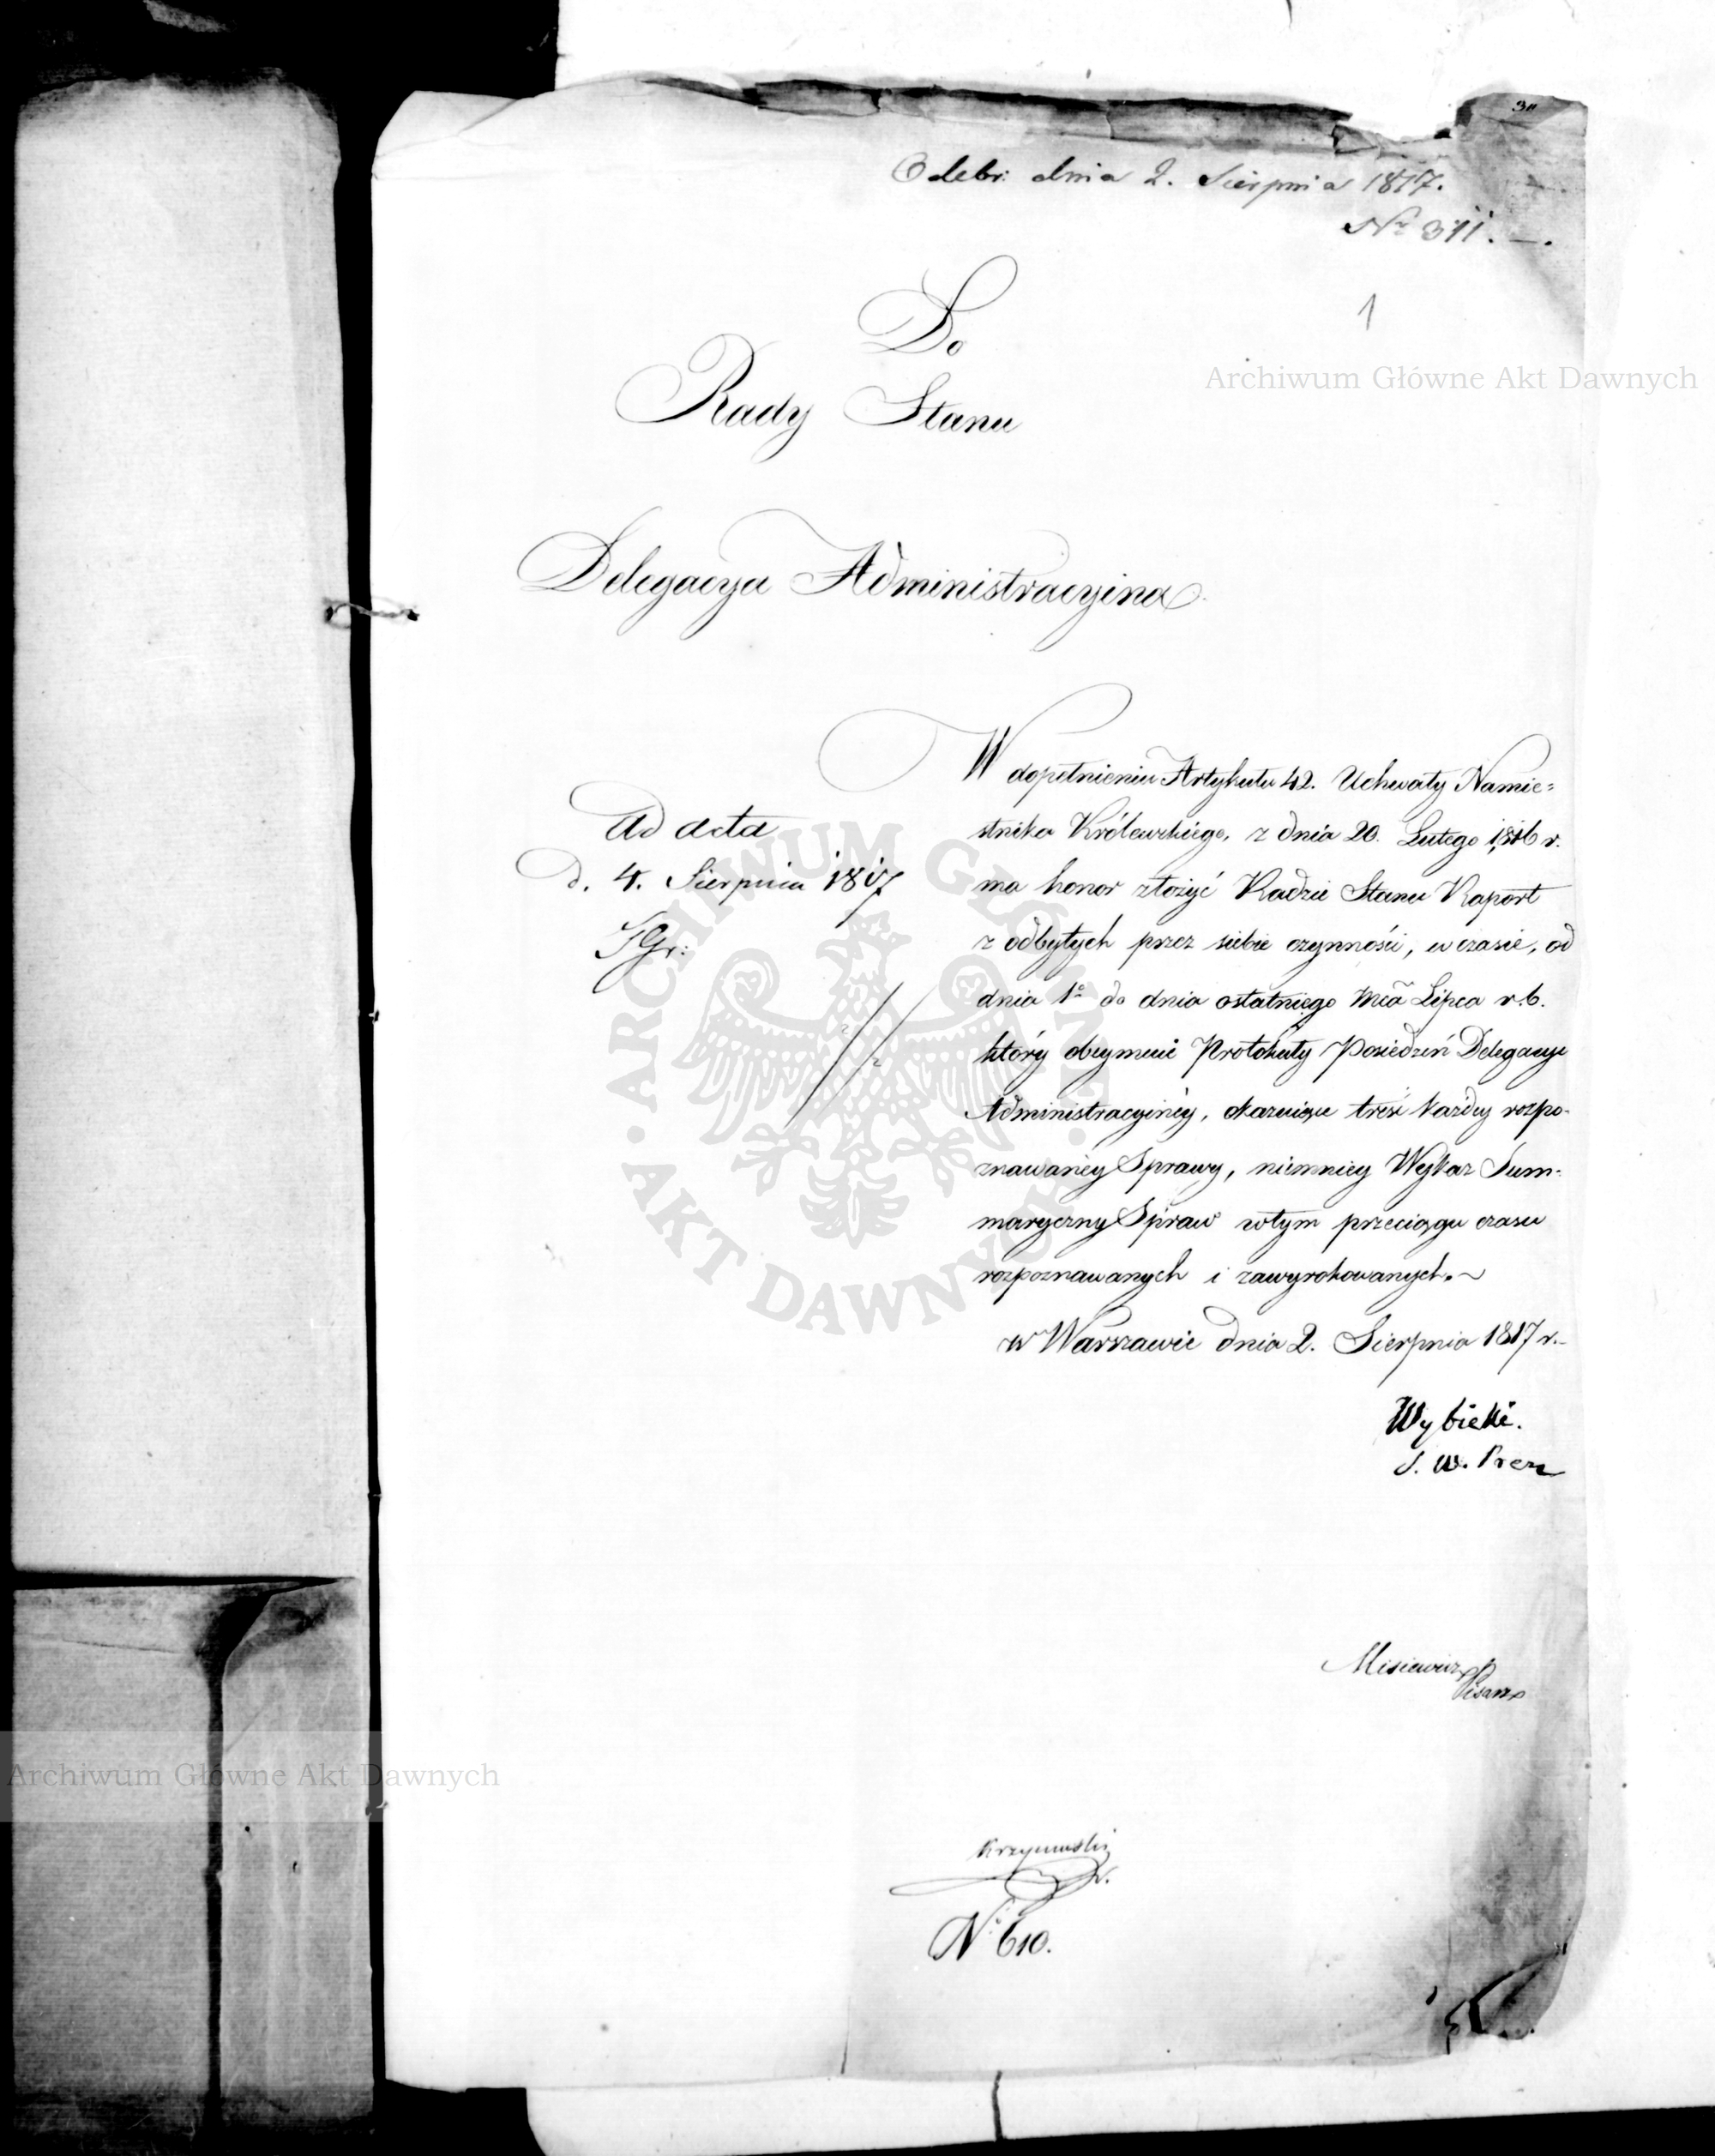 Odebr: dnia 2. Sierpnia 1817.
Nº 311.
1
Archiwum Główne Akt Dawnych
Do
Rady Stanu
Delegacya Administracyina
W dopełnieniu Artykułu 42. Uchwały Namie=
stnika Królewskiego, z dnia 20. Lutego 1816 r.
ma honor złożyć Radzie Stanu Raport
z odbytych przez siebie czynności, w czasie, od
dnia 1º do dnia ostatniego Mca Lipca r.b.
który obeymuie Protokuły Posiedzeń Delegacyi
Administracyinéy, okazuiące treść każdey rozpo-
znawanéy Sprawy, niemniey Wykaz Sum-
maryczny Spraw w tym przeciągu czasu
rozpoznawanych i zawyrokowanych.
w Warszawie dnia 2. Sierpnia 1817 r.
Ad acta
d. 4. Sierpnia 1817
ARCHIWUM GŁÓWNE AKT DAWNYCH
Wybicki.
S. W. Prez
Misiewicz
Pisarz
Archiwum Główne Akt Dawnych
Krzymuski
Nº 610.